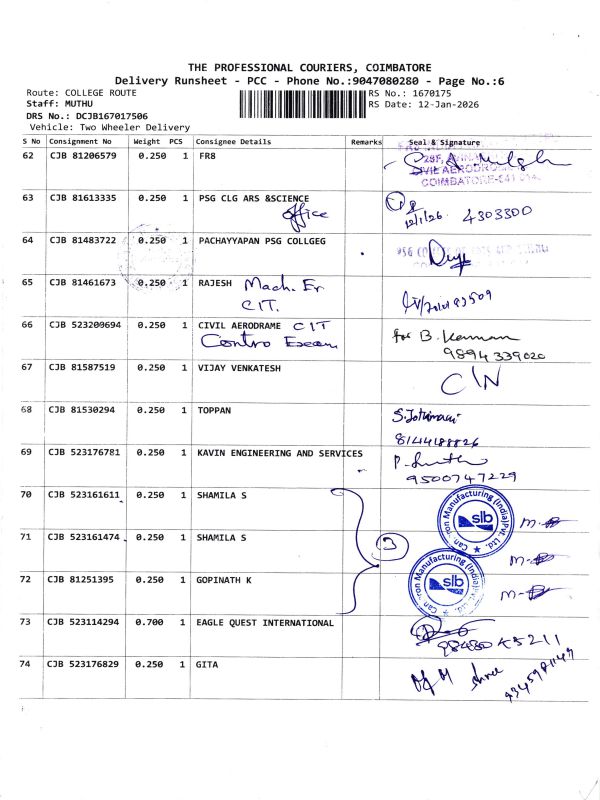 THE PROFESSIONAL COURIERS, COIMBATORE
Delivery Runsheet - PCC - Phone No.:9047080280 - Page No.:6
Route: COLLEGE ROUTE
RS No.: 1670175
Staff: MUTHU
RS Date: 12-Jan-2026
DRS No.: DCJB167017506
Vehicle: Two Wheeler Delivery
S No Consignment No Weight PCS Consignee Details Remarks Seal & Signature
62 CJB 81206579 0.250 1 FR8
CIVIL AERODROME
COIMBATORE-641 014
63 CJB 81613335 0.250 1 PSG CLG ARS &SCIENCE
office
12/1/26 4303300
64 CJB 81483722 0.250 1 PACHAYYAPAN PSG COLLGEG
65 CJB 81461673 0.250 1 RAJESH Mach. Er
CIT.
66 CJB 523200694 0.250 1 CIVIL AERODRAME CIT
Contro Exam
for B. Kannan
9894339020
67 CJB 81587519 0.250 1 VIJAY VENKATESH
C/N
68 CJB 81530294 0.250 1 TOPPAN
S.Jothimani
8144188826
69 CJB 523176781 0.250 1 KAVIN ENGINEERING AND SERVICES
9500747229
70 CJB 523161611 0.250 1 SHAMILA S
slb
Manufacturing (India) Pvt. Ltd.
71 CJB 523161474 0.250 1 SHAMILA S
3
72 CJB 81251395 0.250 1 GOPINATH K
slb
Manufacturing (India) Pvt. Ltd.
73 CJB 523114294 0.700 1 EAGLE QUEST INTERNATIONAL
74 CJB 523176829 0.250 1 GITA